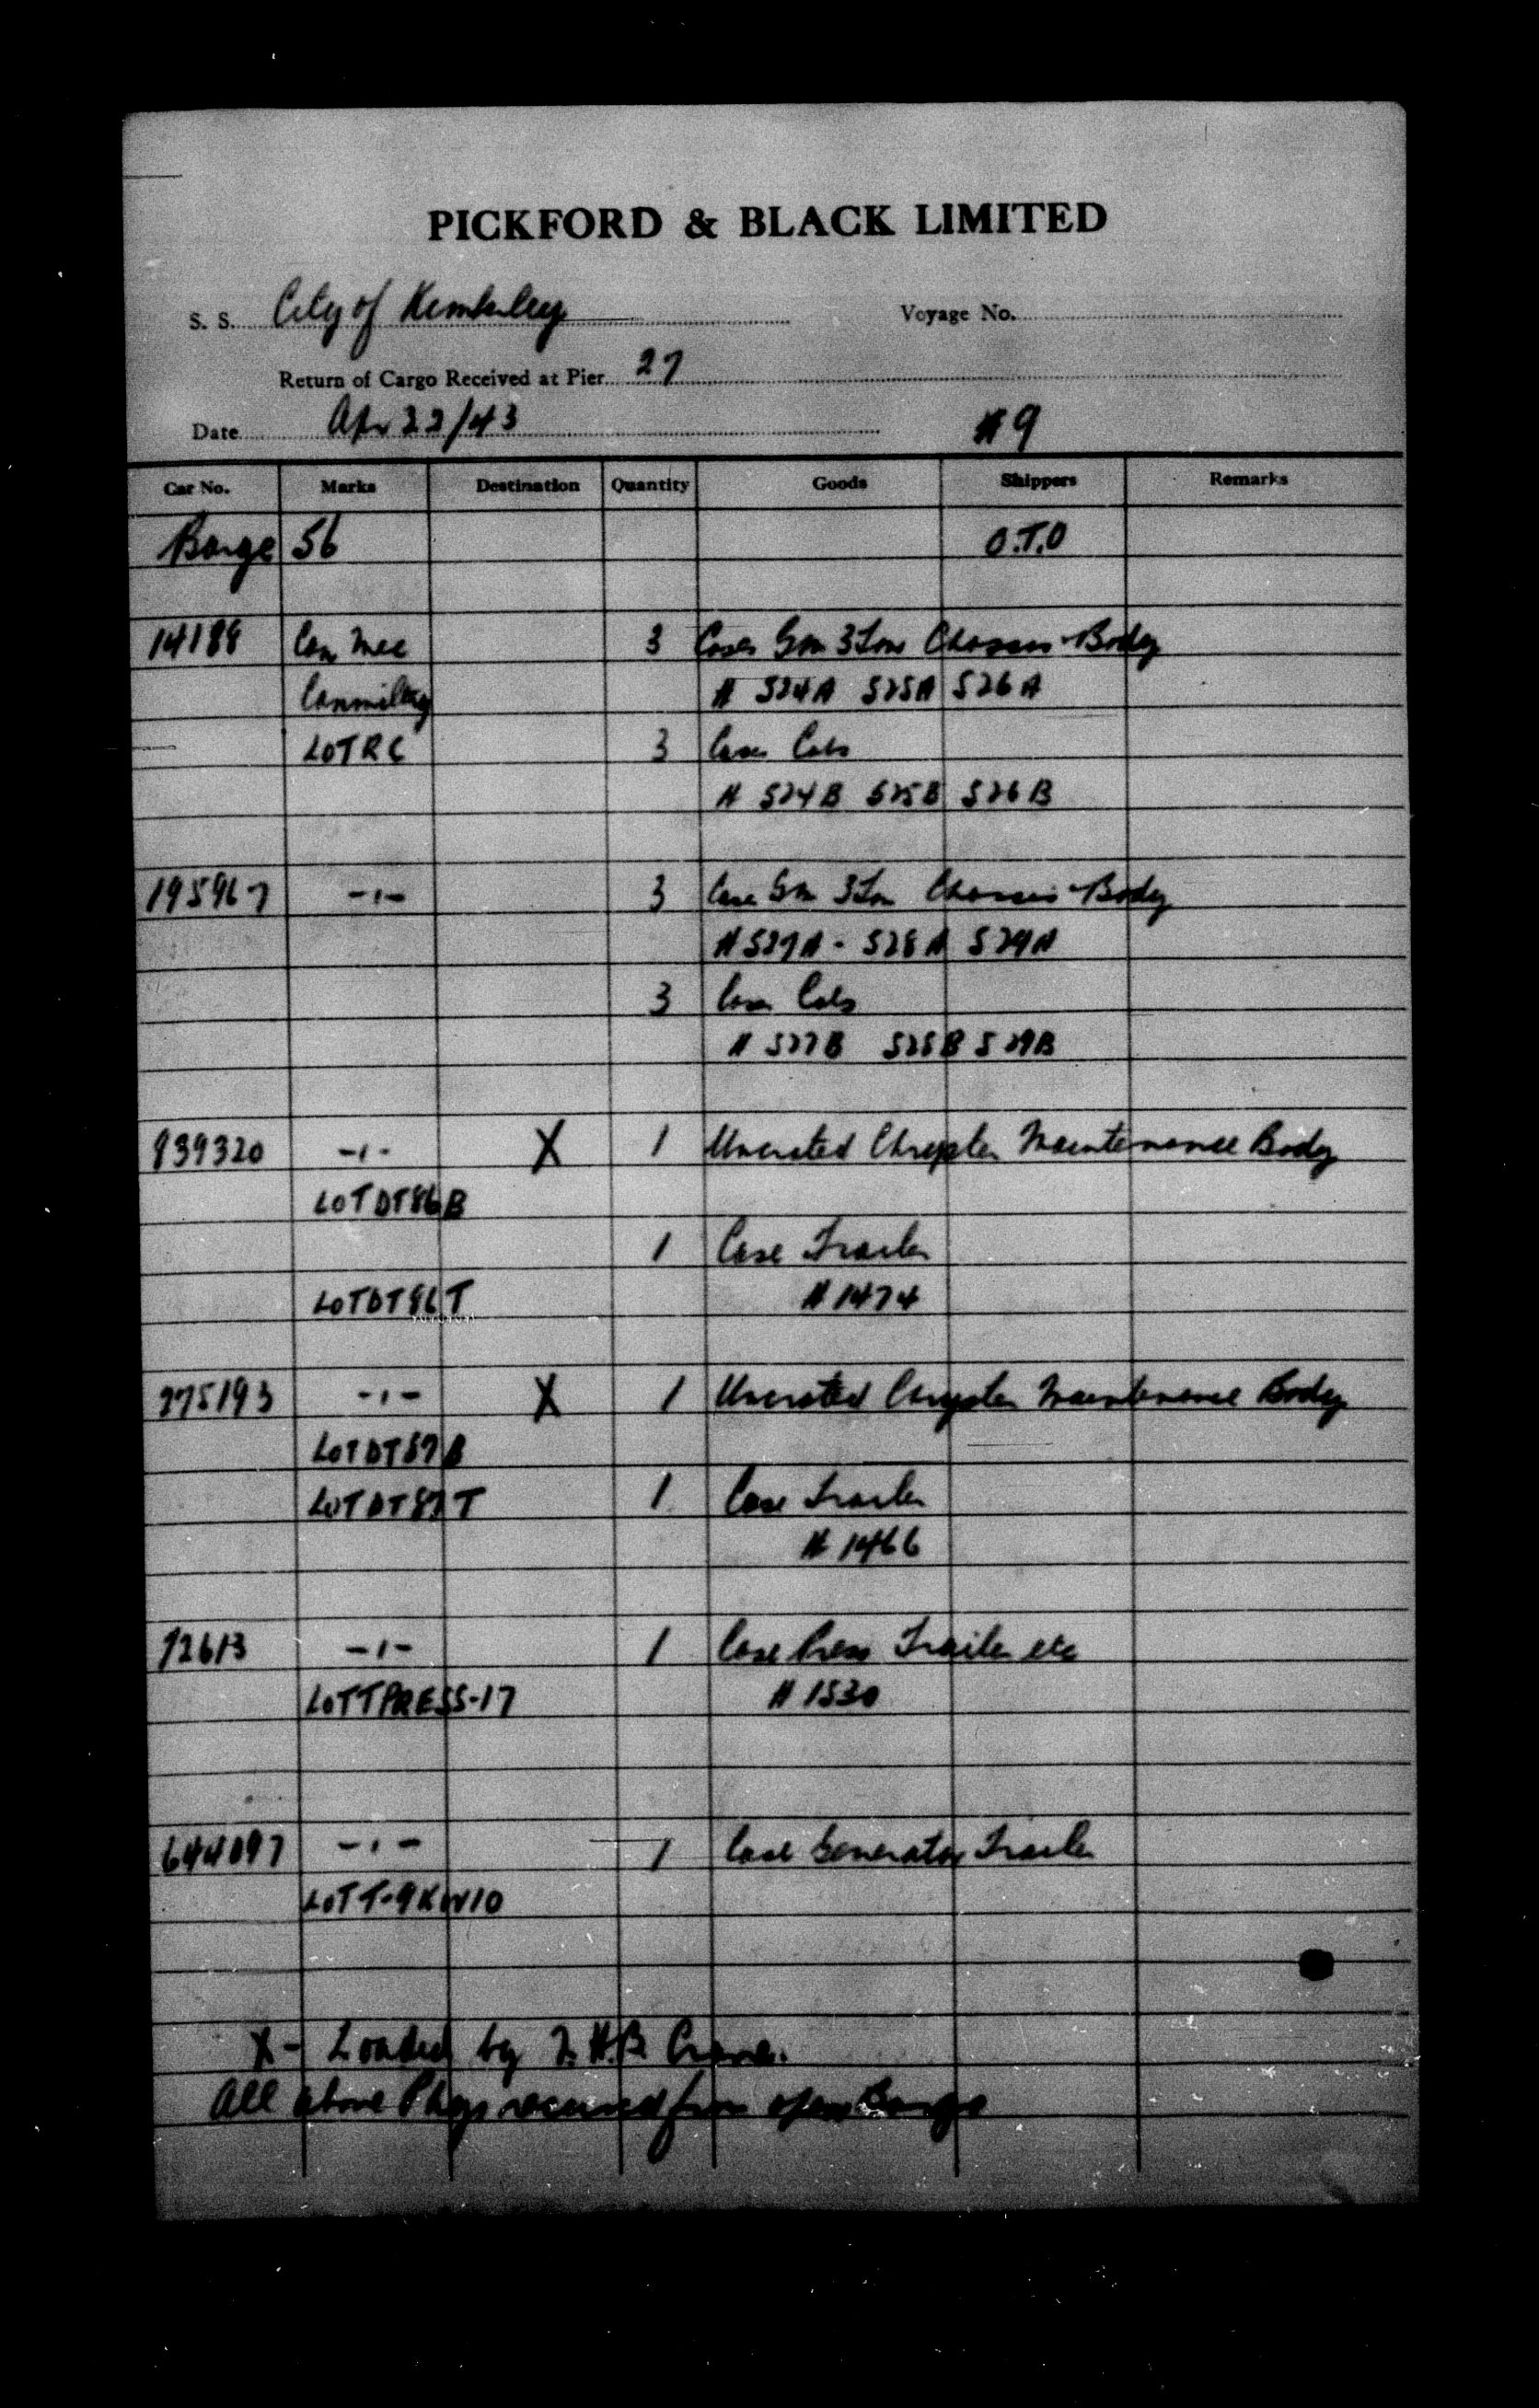 PICKFORD & BLACK LIMITED
S. S. City of Kimberley Voyage No.
Return of Cargo Received at Pier 27
Date Apr 22/43 #9
Car No. Marks Destination Quantity Goods Shippers Remarks
Barge 56 O.T.O
14188 Can Mec 3 Cases Gm 3 Ton Chassis Body
Canmiltry # 524A 525A 526A
LOTRC 3 Cases Cabs
# 524B 525B 526B
195967 -"- 3 Case Gm 3 Ton Chassis Body
# 527A - 528A 529A
3 Case Cabs
# 527B 528B 529B
939320 -"- X 1 Uncrated Chrysler Maintenance Body
LOTDT86B
1 Case Trailer
LOTDT86T # 1474
275193 -"- X 1 Uncrated Chrysler Maintenance Body
LOTDT87B
LOTDT87T 1 Case Trailer
# 1466
72613 -"- 1 Case Press Trailer etc
LOTTPRESS-17 # 1530
644097 -"- 1 Case Generator Trailer
LOTT-9KW10
X - Loaded by H.B. Crane.
All above Pkgs received from open Barge